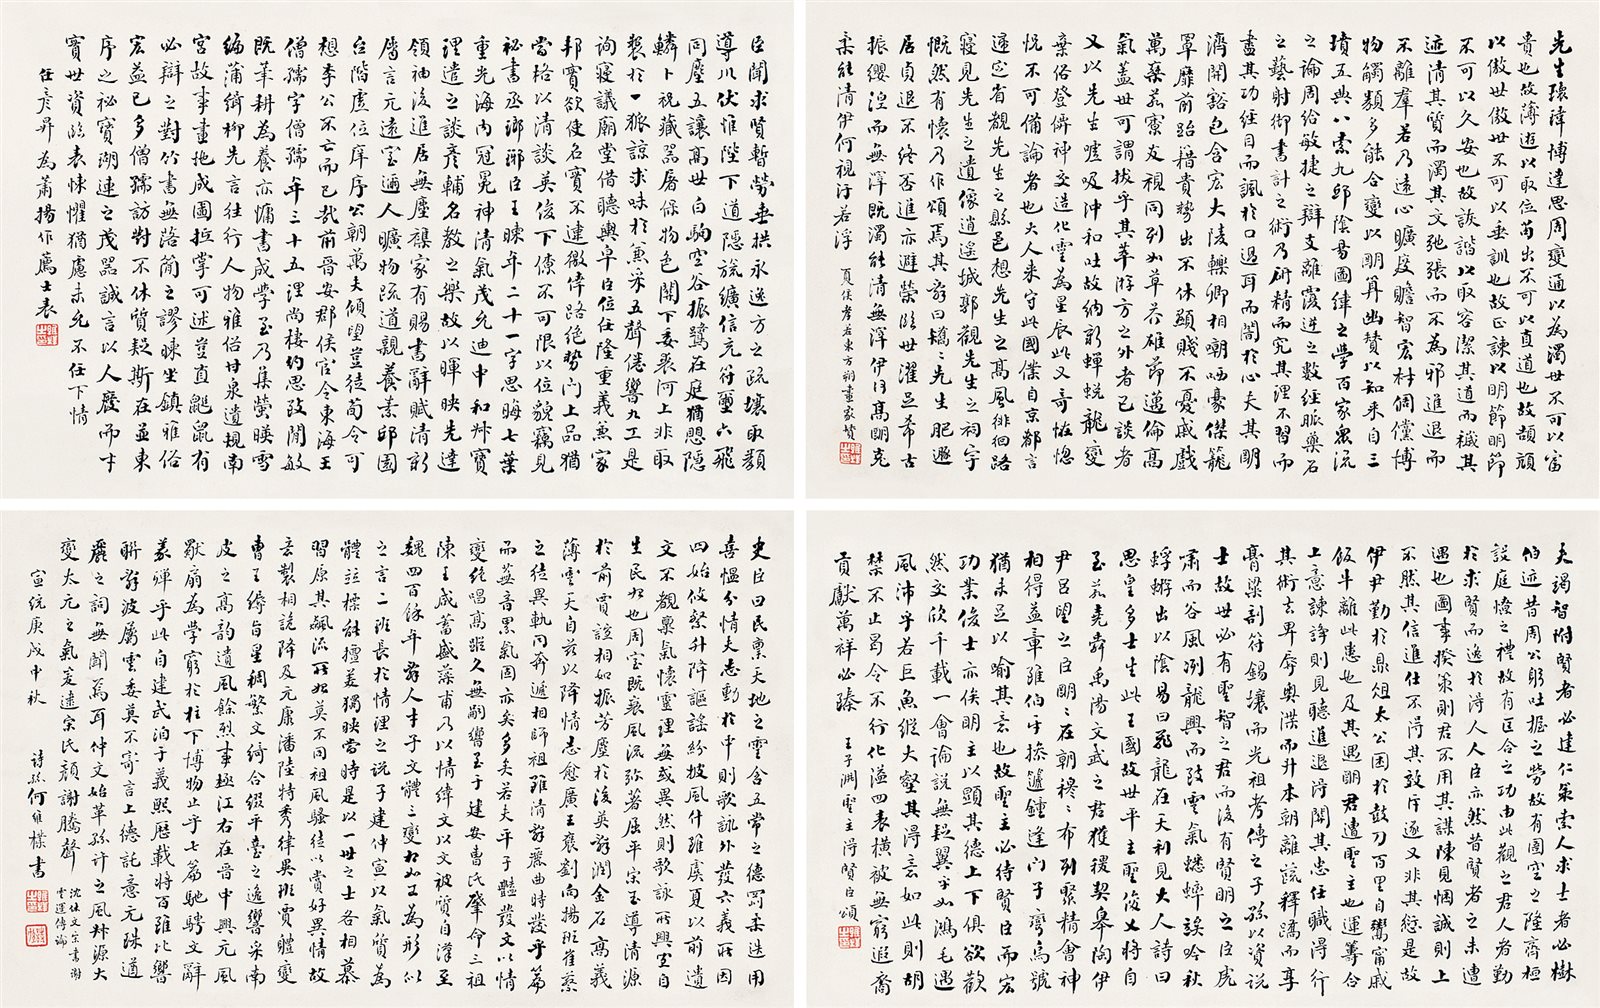 先生瓌瑋博達思周變通以為濁世不可以富
貴也故薄遊以取位苟出不可以直道也故頡頏
以傲世傲世不可以垂訓也故正諫以明節明節
不可以久安也故詼諧以取容潔其道而穢其
迹清其質而濁其文弛張而不為邪進退而
不離羣若乃遠心曠度贍智宏材倜儻博
物觸類多能合變以明算幽贊以知來自三
墳五典八索九邱陰陽圖緯之學百家眾流
之論周給敏捷之辯支離覆逆之數經脈藥石
之藝射御書計之術乃研精而究其理不習而
盡其功經目而諷於口過耳而闇於心夫其明
濟開豁包含宏大陵轢卿相嘲哂豪傑籠
罩靡前跆籍貴勢出不休顯賤不憂戚戲
萬乘若寮友視同列如草芥雄節邁倫高
氣蓋世可謂拔乎其萃游方之外者已談者
又以先生噓吸沖和吐故納新蟬蛻龍變
棄俗登僊神交造化靈為星辰此又奇恠惚
怳不可備論者也大人來守此國僕自京都言
歸定省覩先生之縣邑想先生之高風徘徊路
寢見先生之遺像逍遙城郭觀先生之祠宇
慨然有懷乃作頌焉其辭曰矯〻先生肥遯
居貞退不終否進亦避榮臨世濯足希古
振纓涅而無滓既濁能清無滓伊何高明克
柔能清伊何視汙若浮 夏侯孝若東方朔畫贊
臣聞求賢暫勞垂拱永逸方之疏壤取類
導川伏惟陛下道隱旒纊信充符璽六飛
同塵五讓高世白駒空谷振鷺在庭猶懼隱
鱗卜祝藏器屠保物色關下委裘河上非取
製於一狐諒求味於兼采五聲倦響九工是
詢寢議廟堂借聽輿皁臣位任隆重義兼家
邦實欲使名實不違徼倖路絕勢門上品猶
當格以清談英俊下僚不可限以位貌竊見
祕書丞瑯琊臣王暕年二十一字思晦七葉
重光海內冠冕神清氣茂允迪中和叔寶
理遣之談彥輔名教之樂故以暉映先達
領袖後進居無塵襍家有賜書辭賦清新
屬言元遠室邇人曠物疏道親養素邱園
台階虛位庠序公朝萬夫傾望豈徒荀令可
想李公不亡而已哉前晉安郡侯官令東海王
僧孺字僧孺年三十五理尚棲約思致閒敏
既筆耕為養亦傭書成學至乃集螢映雪
編蒲緝柳先言往行人物雅俗甘泉遺規南
宮故事畫地成圖抵掌可述豈直鼮鼠有
必辯之對竹書無落簡之謬暕坐鎮雅俗
宏益已多僧孺訪對不休質疑斯在並東
序之祕寶瑚璉之茂器誠言以人廢而才
實世資臨表悚懼猶慮未允不任下情
任彥昇為蕭揚作薦士表
夫竭智附賢者必建仁策索人求士者必樹
伯迹昔周公躬吐握之勞故有圄空之隆齊桓
設庭燎之禮故有匡合之功由此觀之君人者勤
於求賢而逸於得人人臣亦然昔賢者之未遭
遇也圖事揆策則君不用其謀陳見悃誠則上
不然其信進仕不得其效斥逐又非其愆是故
伊尹勤於鼎俎太公困於鼓刀百里自鬻甯戚
飯牛離此患也及其遇明君遭聖主也運籌合
上意諫諍則見聽進退得關其忠任職得行
其術去卑辱奧渫而升本朝離疏釋蹻而享
膏粱剖符錫壤而光祖考傳之子孫以資說
士故世必有聖智之君而後有賢明之臣虎
嘯而谷風冽龍興而致雲氣蟋蟀俟吟秋
蜉蝣出以陰易曰飛龍在天利見大人詩曰
思皇多士生此王國故世平主聖俊乂將自
至若堯舜禹湯文武之君獲稷契皋陶伊
尹呂望之臣明〻在朝穆〻布列聚精會神
相得益章雖伯牙操遞鐘逢門子彎烏號
猶未足以喻其意也故聖主必待賢臣而宏
功業俊士亦俟明主以顯其德上下俱欲歡
然交欣千載一會論說無疑翼乎如鴻毛遇
風沛乎若巨魚縱大壑其得意如此則胡
禁不止曷令不行化溢四表橫被無窮遐裔
貢獻萬祥必臻 王子淵聖主得賢臣頌
史臣曰民稟天地之靈含五常之德剛柔迭用
喜慍分情夫志動於中則歌詠外發六義所因
四始攸繫升降謳謠紛披風什雖虞夏以前遺
文不覩稟氣懷靈理無或異然則歌詠所興宜自
生民始也周室既衰風流弥著屈平宋玉導清源
於前賈誼相如振芳塵於後英辭潤金石高義
薄雲天自茲以降情志愈廣王褒劉向揚班崔蔡
之徒異軌同奔遞相師祖雖清辭麗曲時發乎篇
而蕪音累氣固亦多矣若夫平子豔發文以情
變絕唱高蹤久無嗣響至于建安曹氏肇命三祖
陳王咸蓄盛藻甫乃以情緯文以文被質自漢至
魏四百餘年辭人才子文體三變相如工為形似
之言二班長於情理之說子建仲宣以氣質為
體並標能擅美獨映當時是以一世之士各相慕
習原其飈流所始莫不同祖風騷徒以賞好異情故
意製相詭降及元康潘陸特秀律異班賈體變
曹王縟旨星稠繁文綺合綴平臺之逸響采南
皮之高韵遺風餘烈事極江右在晉中興元風
獨扇為學窮於柱下博物止乎七篇馳騁文辭
義殫乎此自建武洎于義熙歷載將百雖比響
聯辭波屬雲委莫不寄言上德託意元珠遒
麗之詞無聞焉耳仲文始革孫許之風叔源大
變太元之氣爰逮宋氏顏謝騰聲 沈休文宋書謝
靈運傳論
宣統庚戌中秋 詩孫何維樸書